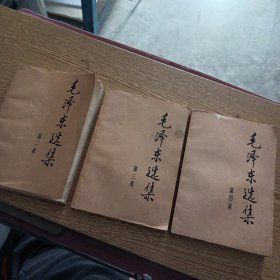 毛泽东选集
第二卷
毛泽东选集
第三卷
毛泽东选集
第四卷